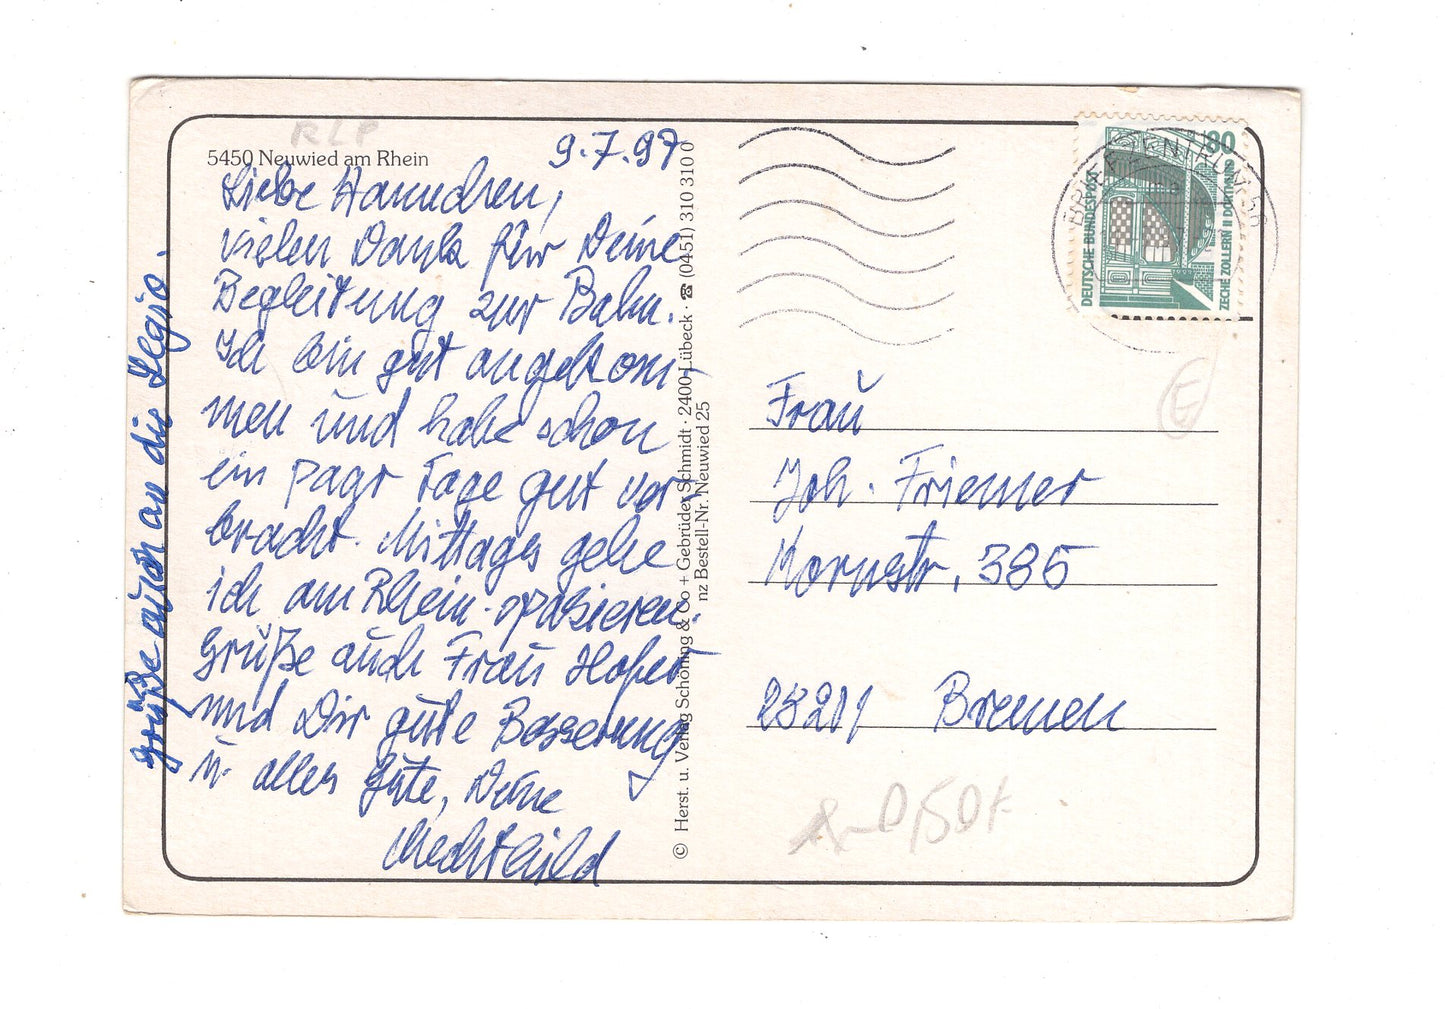 RLP
5450 Neuwied am Rhein
9.7.97
Liebe Hannchen,
vielen Dank für Deine
Begleitung zur Bahn.
Ich bin gut angekom-
men und habe schon
ein paar Tage gut ver-
bracht. Mittags gehe
ich am Rhein spazieren.
Grüße auch Frau
und Dir gute Besserung
u. alles Gute, Deine
Mechthild
Grüße auch an die Legio.
© Herst. u. Verlag Schöning & Co + Gebrüder Schmidt · 2400 Lübeck · ☎ (0451) 310 310 0
nz Bestell-Nr. Neuwied 25
80
DEUTSCHE BUNDESPOST
ZECHE ZOLLERN II DORTMUND
BRIEFZENTRUM 56
Frau
Joh. Friemer
Kornstr. 385
28201 Bremen